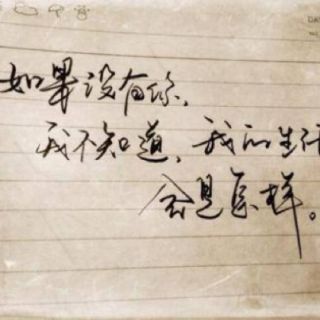 如果没有你,
我不知道,我的生活
会是怎样。